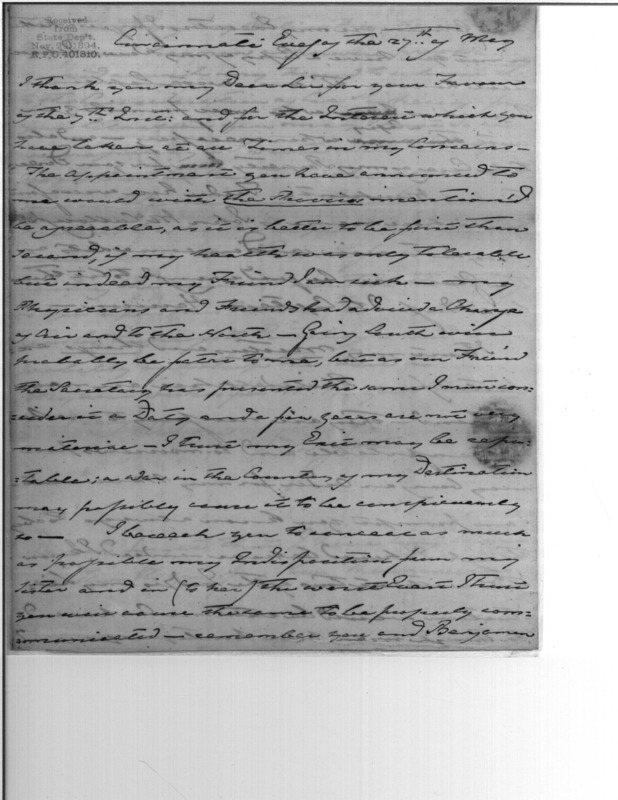 Received
from
State Dep't.
Nov. 20 1894.
R.P.O. 401810.
Cincinnati Eveg of the 27th of May
I thank you my Dear Sir for your Favour
of the 7th Inst: and for the Interest which you
have taken at all Times in my Concerns —
The Appointment you have announced to
me would with the Proviso mention'd
be agreeable, as it is better to be first than
second, if my health was only tolerable
but indeed my Friend I am sick — my
Physicians and Friends had advised a Change
of Air and to the North — Going South will
probably be fatal to me, but as our Friend
the Secretary has presented the same I must con:
:sider it a Duty and a few years are not very
material — I trust my Exit may be repu:
:table; a War in the Country of my Destination
may possibly cause it to be conspicuously
so — I beseech you to conceal as much
as Possible my Indisposition from my
Sister and in (to her) the worst Event I trust
you will cause the same to be properly com:
:municated — remember you and Benjamin